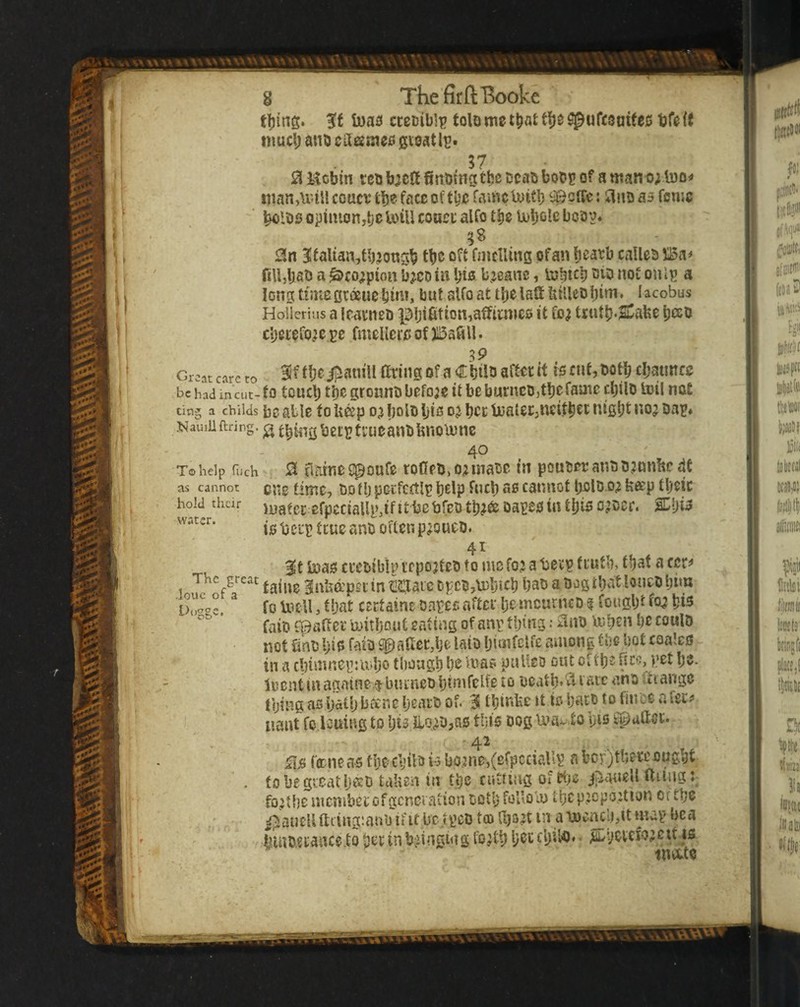 8 The first Booke
thing. It was credibly told me that the Muscouites vse it
much and esteemes greatly.
37
A Robin red brest finding the dead body of a man or wo-
man, will couer the face of the same with Mosse: And as some
holds opinion, he will couer also the whole body.
38
An Italian, through the oft smelling of an hearb called Ba-
sill, had a Scorpion bred in his breane, which did not only a
long time grieue him, but also at the last killed him. Iacobus
Hollerius a learned Phisition, affirmes it for truth. Take heed
therefore ye smellers of Basill.
39
Great care to
be had in cut-
ting a childs
Nauill string.
If the Nauill string of a Child after it is cut, doth chaunce
to touch the ground before it be burned, the same child wil not
be able to keep or hold his or her water, neither night nor day.
A thing very true and knowne
40
To help such
as cannot
hold their
water.
A flaine Mouse rosted, or made in pouder and drunke at
one time, doth perfectly help such as cannot hold or keep their
water especially, if it be vsed three dayes in this order. This
is very true and often proued.
41
The great
loue of a
Dogge.
It was credibly reported to me for a very truth, that a cer-
taine Inkeeper in Ware dyed, which had a dog that loued him
so well, that certaine dayes after he mourned & sought for his
said Master without eating of any thing: And when he could
not find his said Master, he laid himselfe among the hot coales
in a chimney: who though he was pulled out of the fire, yet he
went in againe & burned himselfe to death. A rare and strange
thing as hath beene heard of. I thinke it is hard to finde a ser-
uant so louing to his Lord, as this dog was to his Master.
42
As soone as the child is borne, (especially a boy) there ought
to be great heed taken in the cutting of the Nauell string:
for the member of generation doth follow the proportion of the
Nauell string: and if it be tyed too short in a wench, it may be a
hinderance to her in bringing forth her child. Therefore it is
made